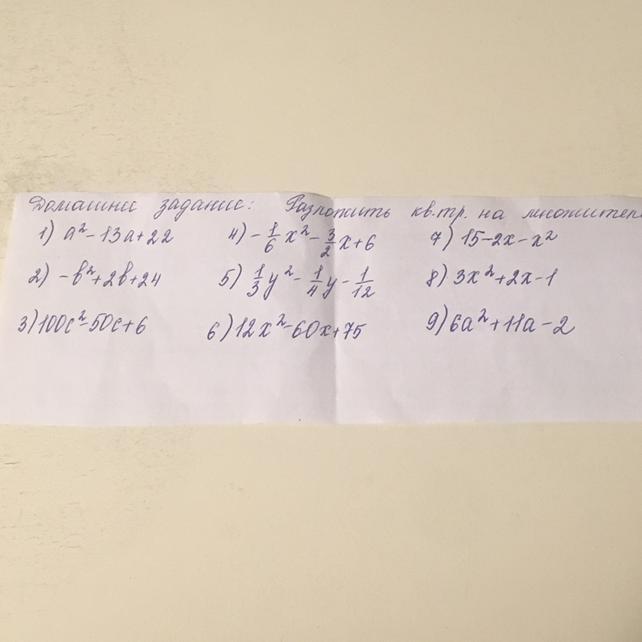 Домашнее задание: Разложить кв.тр. на множител
1) a² - 13a + 22 4) - 1/6 x² - 3/2 x + 6 7) 15 - 2x - x²
2) -b² + 2b + 24 5) 1/3 y² - 1/4 y - 1/12 8) 3x² + 2x - 1
3) 100c² - 50c + 6 6) 12x² - 60x + 75 9) 6a² + 11a - 2